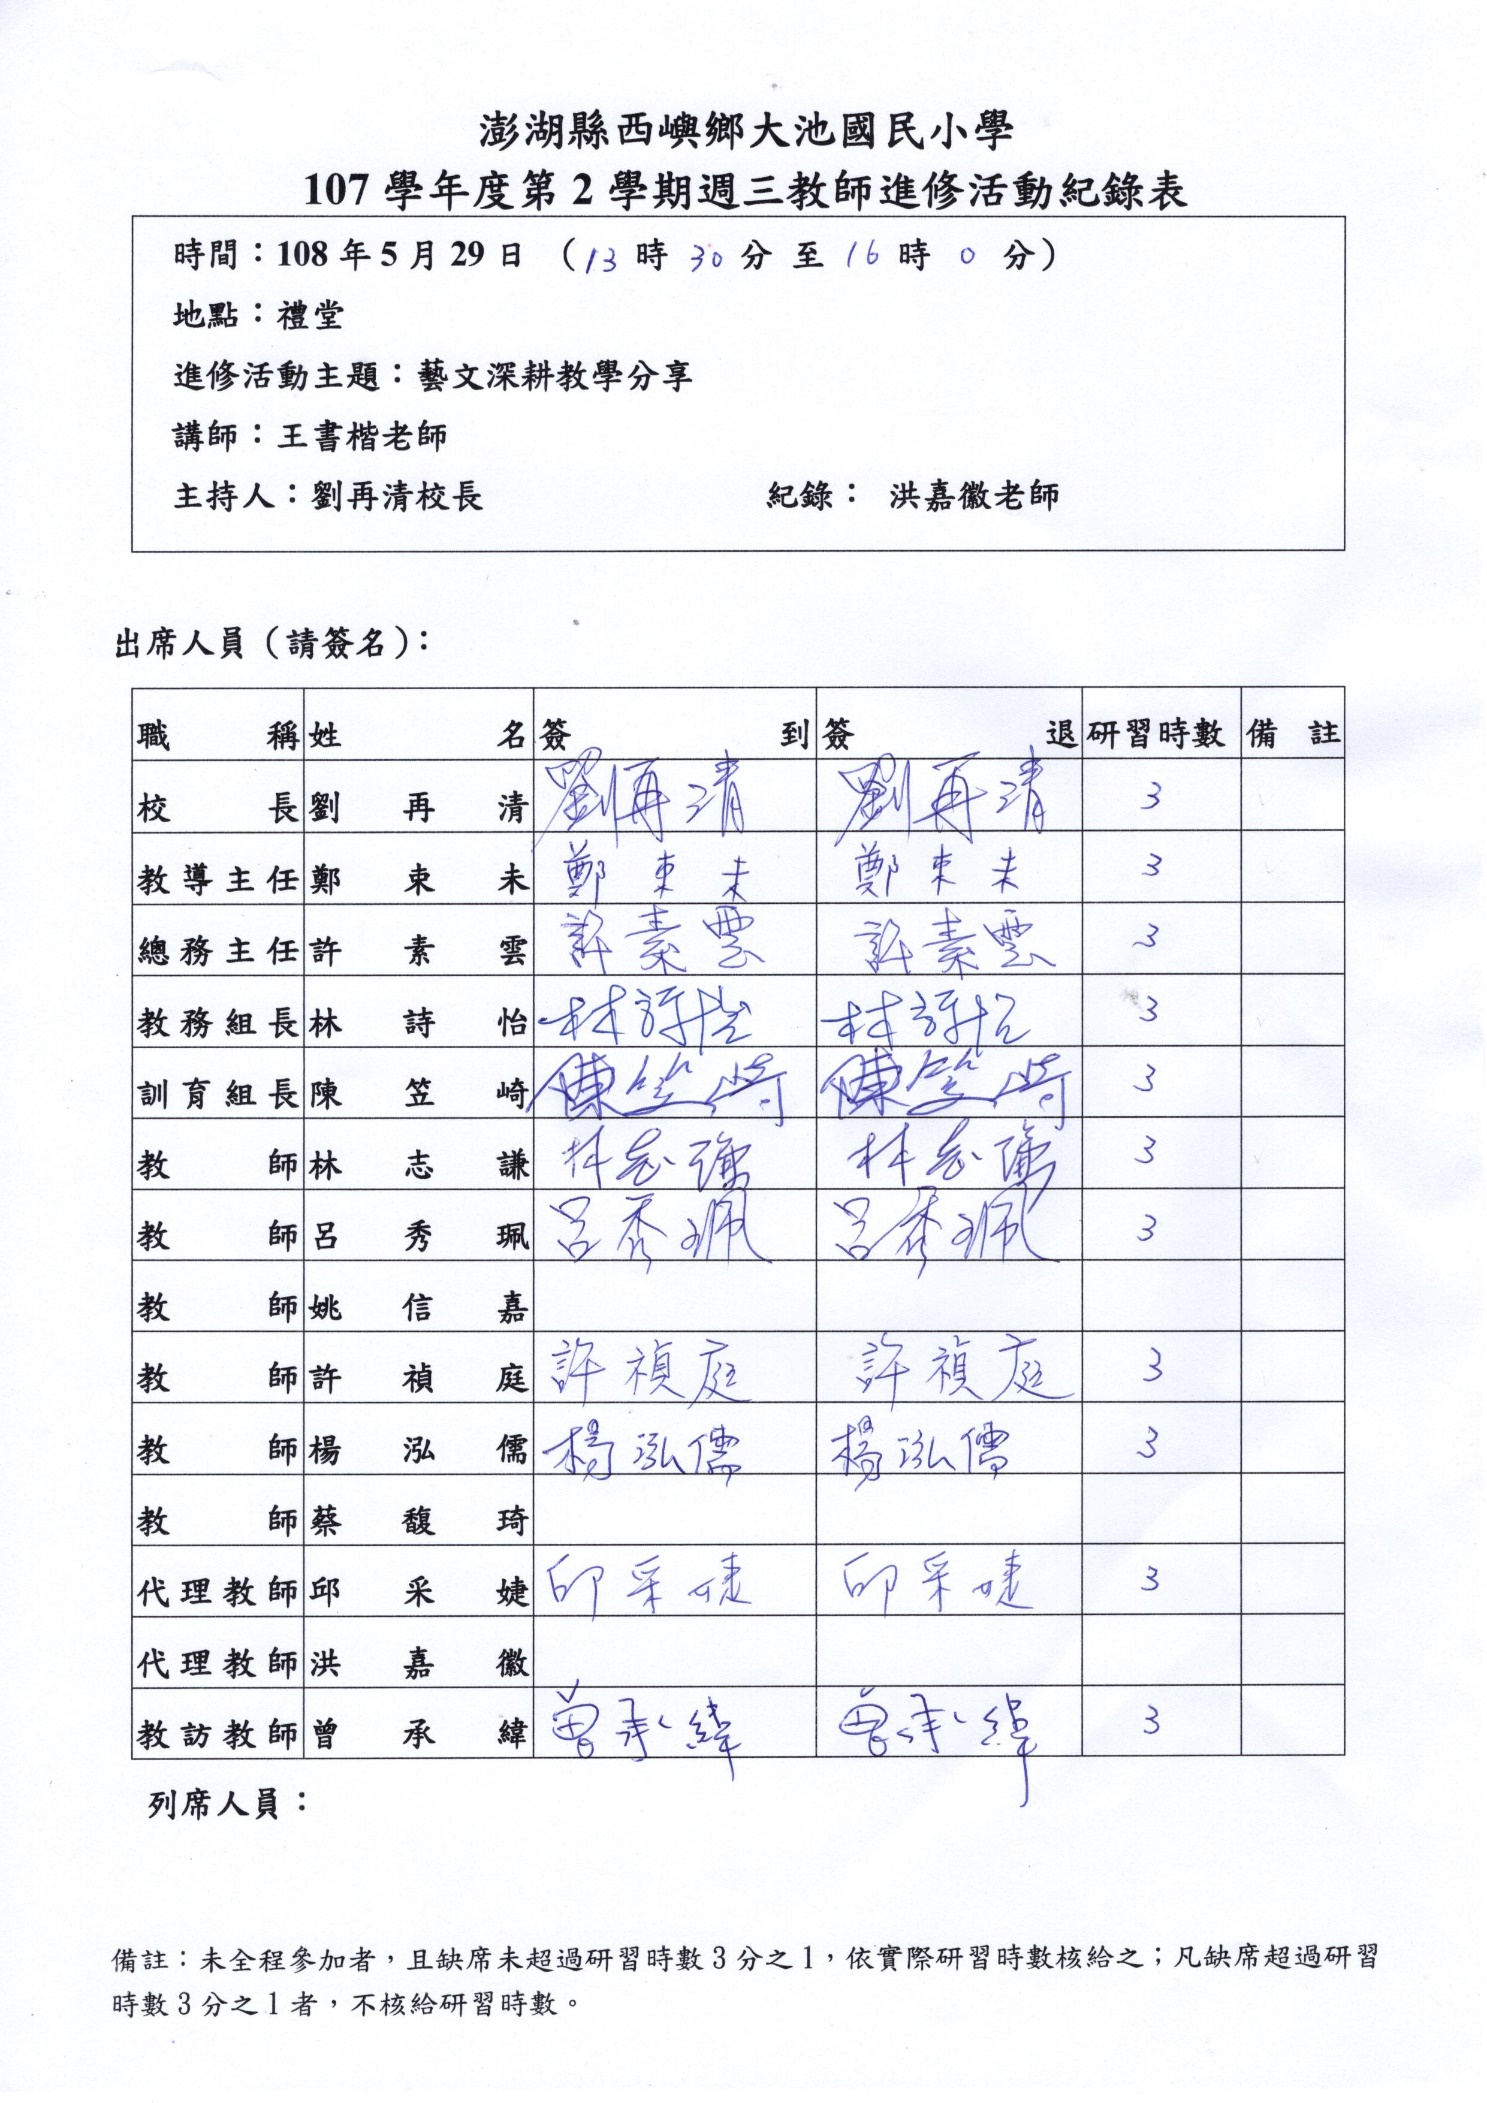 澎湖縣西嶼鄉大池國民小學
107 學年度第 2 學期週三教師進修活動紀錄表
時間：108 年 5 月 29 日 （13 時 30 分 至 16 時 0 分）
地點：禮堂
進修活動主題：藝文深耕教學分享
講師：王書楷老師
主持人：劉再清校長 紀錄： 洪嘉徽老師
出席人員（請簽名）：
職稱 姓名 簽到 簽退 研習時數 備註
校長 劉再清 劉再清 劉再清 3
教導主任 鄭束未 鄭束未 鄭束未 3
總務主任 許素雲 許素雲 許素雲 3
教務組長 林詩怡 林詩怡 林詩怡 3
訓育組長 陳笠崎 陳笠崎 陳笠崎 3
教師 林志謙 林志謙 林志謙 3
教師 呂秀珮 呂秀珮 呂秀珮 3
教師 姚信嘉
教師 許禎庭 許禎庭 許禎庭 3
教師 楊泓儒 楊泓儒 楊泓儒 3
教師 蔡馥琦
代理教師 邱采婕 邱采婕 邱采婕 3
代理教師 洪嘉徽
教訪教師 曾承緯 曾承緯 曾承緯 3
列席人員：
備註：未全程參加者，且缺席未超過研習時數 3 分之 1，依實際研習時數核給之；凡缺席超過研習
時數 3 分之 1 者，不核給研習時數。